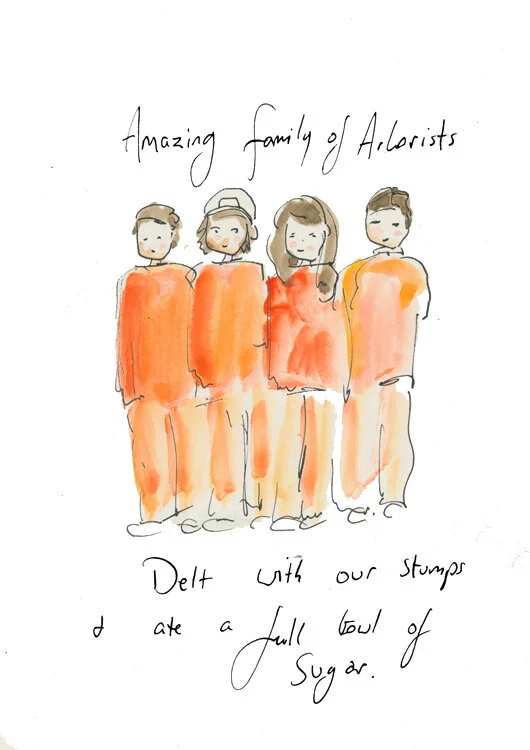 Amazing family of Arborists
Delt with our stumps
& ate a full bowl of
Sugar.